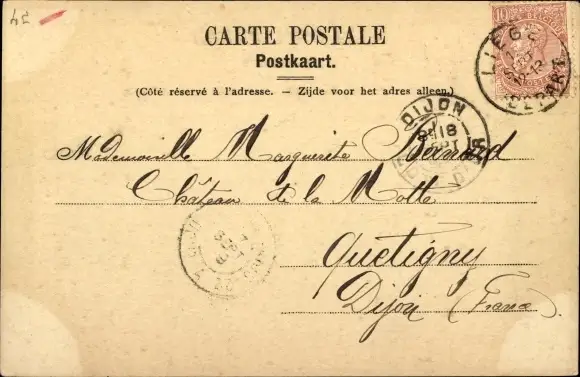 CARTE POSTALE
Postkaart.
(Côté réservé à l'adresse. – Zijde voor het adres alleen.)
10
LIÉGE
DÉPART
DIJON
18
Mademoiselle Marguerite Bénard
Château de la Motte
Quetigny
Dijon (France)